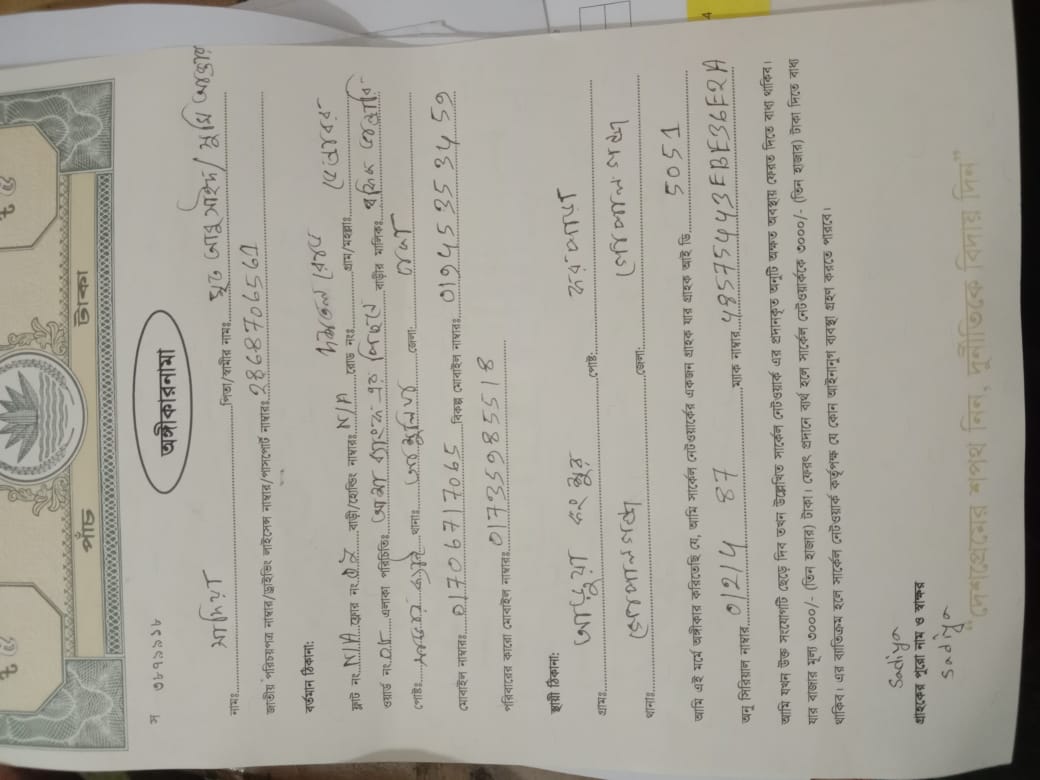 পাঁচ টাকা
স ৩৮৭১১১৮
অঙ্গীকারনামা
নামঃ সাদিয়া পিতা/স্বামীর নামঃ মৃত আবু সাইদ/ মুন্নি আক্তার
জাতীয় পরিচয়পত্র নাম্বার/ড্রাইভিং লাইসেন্স নাম্বার/পাসপোর্ট নাম্বারঃ
বর্তমান ঠিকানা:
ফ্লাট নং N/A ফ্লোর নং বাড়ী/হোল্ডিং নাম্বারঃ N/A রোড নংঃ গ্রাম/মহল্লাঃ
ওয়ার্ড নং ০৮ এলাকা পরিচিতিঃ এর পিছনে বাড়ীর মালিকঃ
পোষ্টঃ থানাঃ জেলা:
মোবাইল নাম্বারঃ 01706717065 বিকল্প মোবাইল নাম্বারঃ 01945353459
পরিবারের কারো মোবাইল নাম্বারঃ 01735985518
স্থায়ী ঠিকানা:
গ্রামঃ পোষ্ট:
থানাঃ গোপালগঞ্জ জেলা: গোপালগঞ্জ
আমি এই মর্মে অঙ্গীকার করিতেছি যে, আমি সার্কেল নেটওয়ার্কের একজন গ্রাহক যার গ্রাহক আই ডি 5051
অনু সিরিয়াল নাম্বার 01214 87 ম্যাক নাম্বার 48575443EBE36E2A
আমি যখন উক্ত সংযোগটি ছেড়ে দিব তখন উল্লেখিত সার্কেল নেটওয়ার্ক এর প্রদানকৃত অনুটি অক্ষত অবস্থায় ফেরত দিতে বাধ্য থাকিব।
যার বাজার মূল্য ৩০০০/- (তিন হাজার) টাকা। ফেরৎ প্রদানে ব্যর্থ হলে সার্কেল নেটওয়ার্ককে ৩০০০/- (তিন হাজার) টাকা দিতে বাধ্য
থাকিব। এর ব্যতিক্রম হলে সার্কেল নেটওয়ার্ক কর্তৃপক্ষ যে কোন আইনানুগ ব্যবস্থা গ্রহণ করতে পারবে।
Sadiya
Sadiya
গ্রাহকের পুরো নাম ও স্বাক্ষর
"দেশপ্রেমের শপথ নিন, দুর্নীতিকে বিদায় দিন"